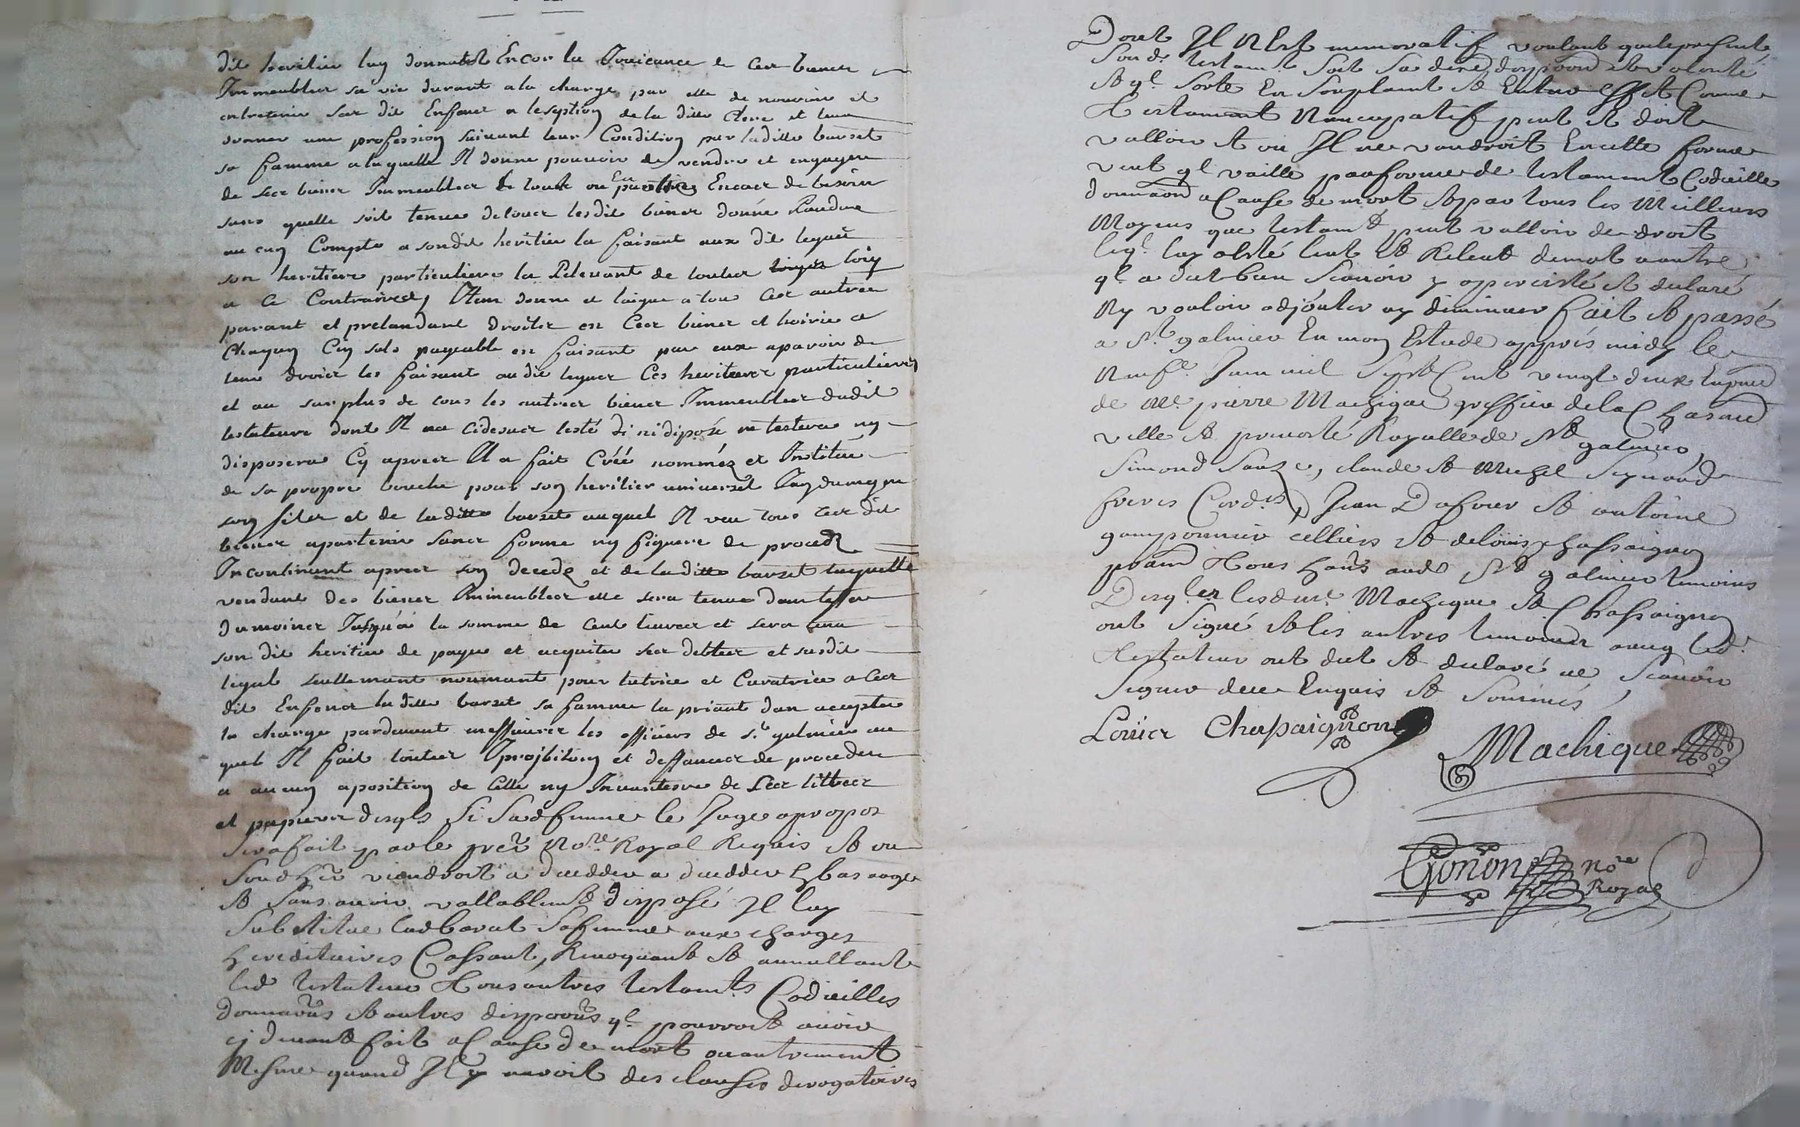 dit heritier luy donnant Encor la Jouicance de ces biens
Immeubles sa vie durant a la charge par elle de nourir et
entretenir ses dit Enfans a lexeption de la ditte Clere et leur
donner une profession suivant leur Condition par laditte barset
sa famme a laquelle Il donne pouvoir de vendre et engager
de ses biens Immeubles de tout ou En partie Encas de besoin
sans quelle soit tenue de louer lesdit biens donné Randre
aucuy Compte a sondit heritier la faisant aux dit legat
son heritiere particuliere la Relevant de toutes loix
a ce Contraires, Item donne et laigue a tous ces autres
parant et pretandant droits en Ces biens et hoirie a
Chaquy Ciy sols payable en faisant par eux aparoir de
leur droits les faisant audit legat Ces heritiers particuliers
et au surplus de tous les autres biens Immeubles dudit
testateur dont Il na cidesus testé ni dispozé ne testera ny
disposera Cy apres Il a fait Créé nommez et Institué
de sa propre bouche pour soy heritier universel
soy fils et de laditte barset auquel Il veu tous ces dit
biens apartenir sans forme ny figure de proces
Incontinent apres soy decedz et de laditte barset laquelle
vendant des biens Immeubles elle sera tenue dan lesser
dumoins Jusqu'a la somme de cent livres et sera tenu
son dit heritier de payer et acquiter ses debtes et susdit
legat seullement nommant pour tutrice et Curatrice a ces
dit Enfans laditte barset sa famme la priant dan accepter
la charge pardevant messieurs les officiers de St galmier au
quels Il fait toutes Iproibitioy et deffances de proceder
a aucuy aposition de selle ny Invantere de ses tittres
et papiers desqls Si Sadfemme le Juge apropos
Sera fait par le pnt Nore Royal Requis Et ou
Sond her viendroit a deceder a deceder En bas aage
Et Sans avoir vallablemt disposé Il luy
Substitue ladbarset Safemme aux charges
hereditaires Cassant, Revoquant Et annullant
led testateur Tous autres testamts Codicilles
donnaons Et autres disposons ql pourroit avoir
cy devant fait a Cause de mort ou autrement
Mesme quand Il y auroit des clauses derogatoires
Dont Il N'est memoratif voulant que le present
Sond testamt Soit Sa derre disposon et volonté
Et ql Sorte En Son plaint Et Entier Effet Comme
Testament Nuncupatif peut Et doit
valloir Et ou Il ne vaudroit En cette forme
veut ql vaille par forme de testament Codicille
donnaon a Cause de mort Et par tous les Meilleurs
Moyens que testamt peut valloir de droit
leql luy a Esté leut Et Releut de mot a autre
ql a dit bien Scavoir y a perciste Et declaré
Ny vouloir adjouter ny diminuer fait Et passé
a St galmier En moy Estude appres midy le
Neufe Juin mil Sept Cent vingt deux En pnce
de Me pierre Machique greffier de la Chastnie
ville Et prevosté Royalle de St galmier,
Simond Sauze, claude Et Michel
freres Cordrs, Jean Dafour Et antoine
gamponnier celliers Et de louis chassaignoy
praen Tous habts aud St galmier temoins
Desqls lesd Me Machique Et Chassaignoy
ont Signé Et les autres temoins avecq led
Testateur ont dit Et declaré ne Scavoir
Signer dece Enquis Et Sommés,
Loüis Chapaignon
Machique
Gonon Nore
Royal